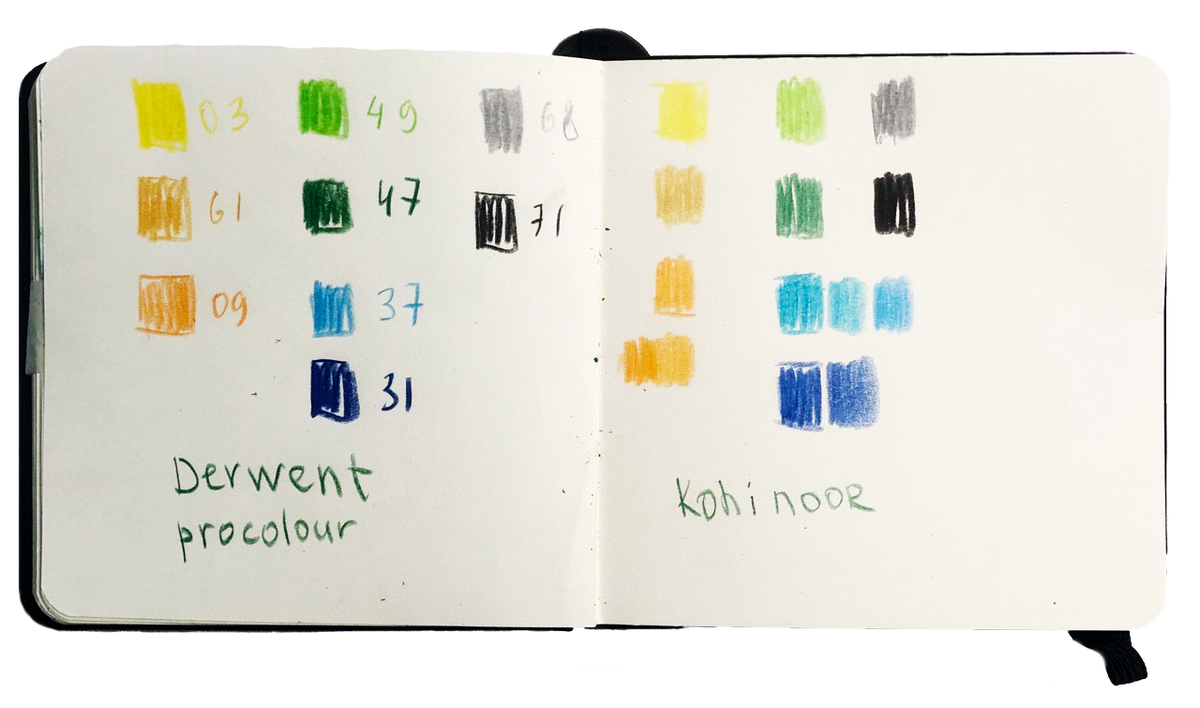 03 49 68
61 47 71
09 37
31
Derwent
procolour
Kohi nooR